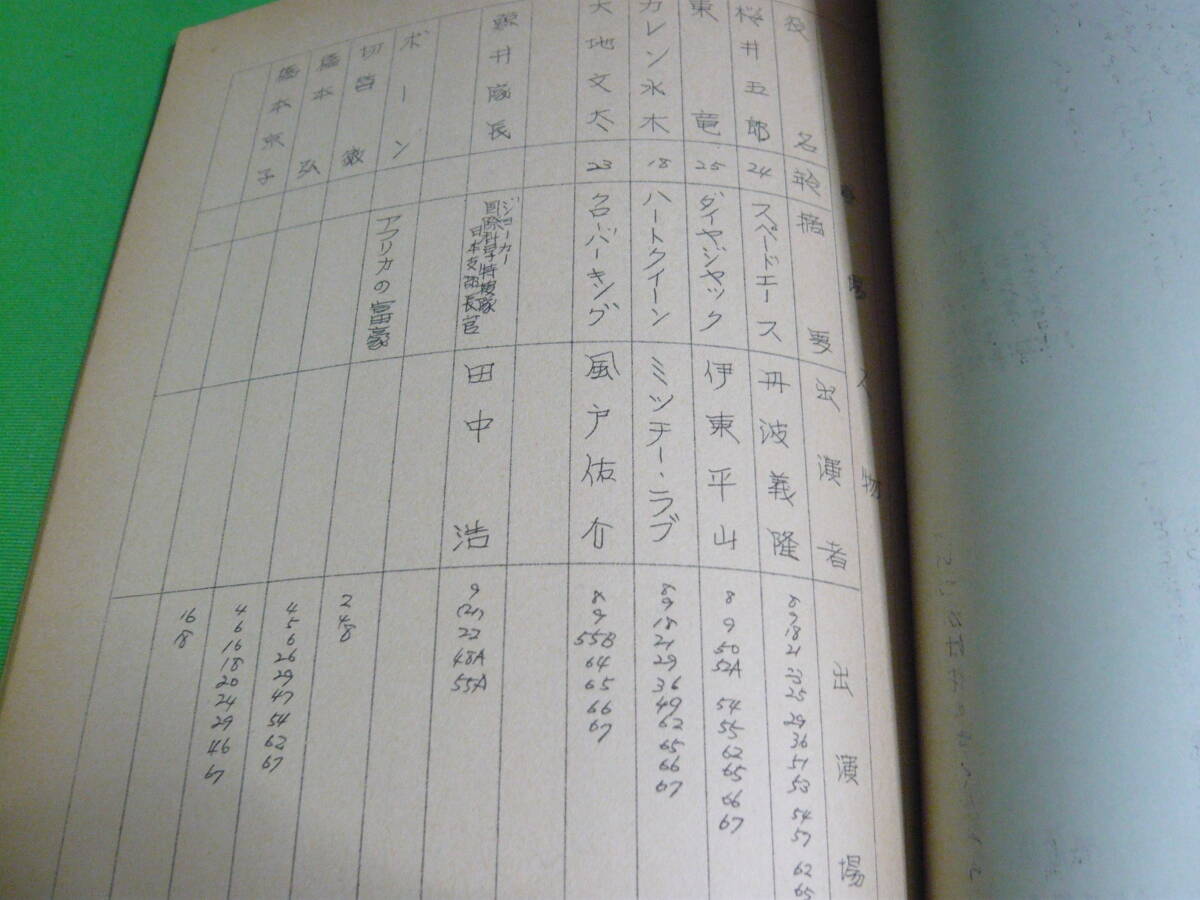 登場人物
役名 年令 摘要 出演者 出演場
桜井五郎 24 スペードエース 丹波義隆 8 9 18 21 23 25 29 36 51 53 54 57 62 65
東竜 25 ダイヤジャック 伊東平山 8 9 50 52A 54 55 62 65 66 67
カレン水木 18 ハートクイーン ミッチー・ラブ 8 9 18 21 29 36 49 62 65 66 67
大地文太 23 クローバーキング 風戸佑介 8 9 55B 64 65 66 67
鯨井隊長 ジョーカー 国際科学特捜隊 日本支部長官 田中浩 9 (21) 22 48A 55A
ボーン アフリカの富豪 2 48
4 5 6 26 29 47 54 62 67
橋本弘 4 6 16 18 20 24 29 46 67
橋本京子 16 18